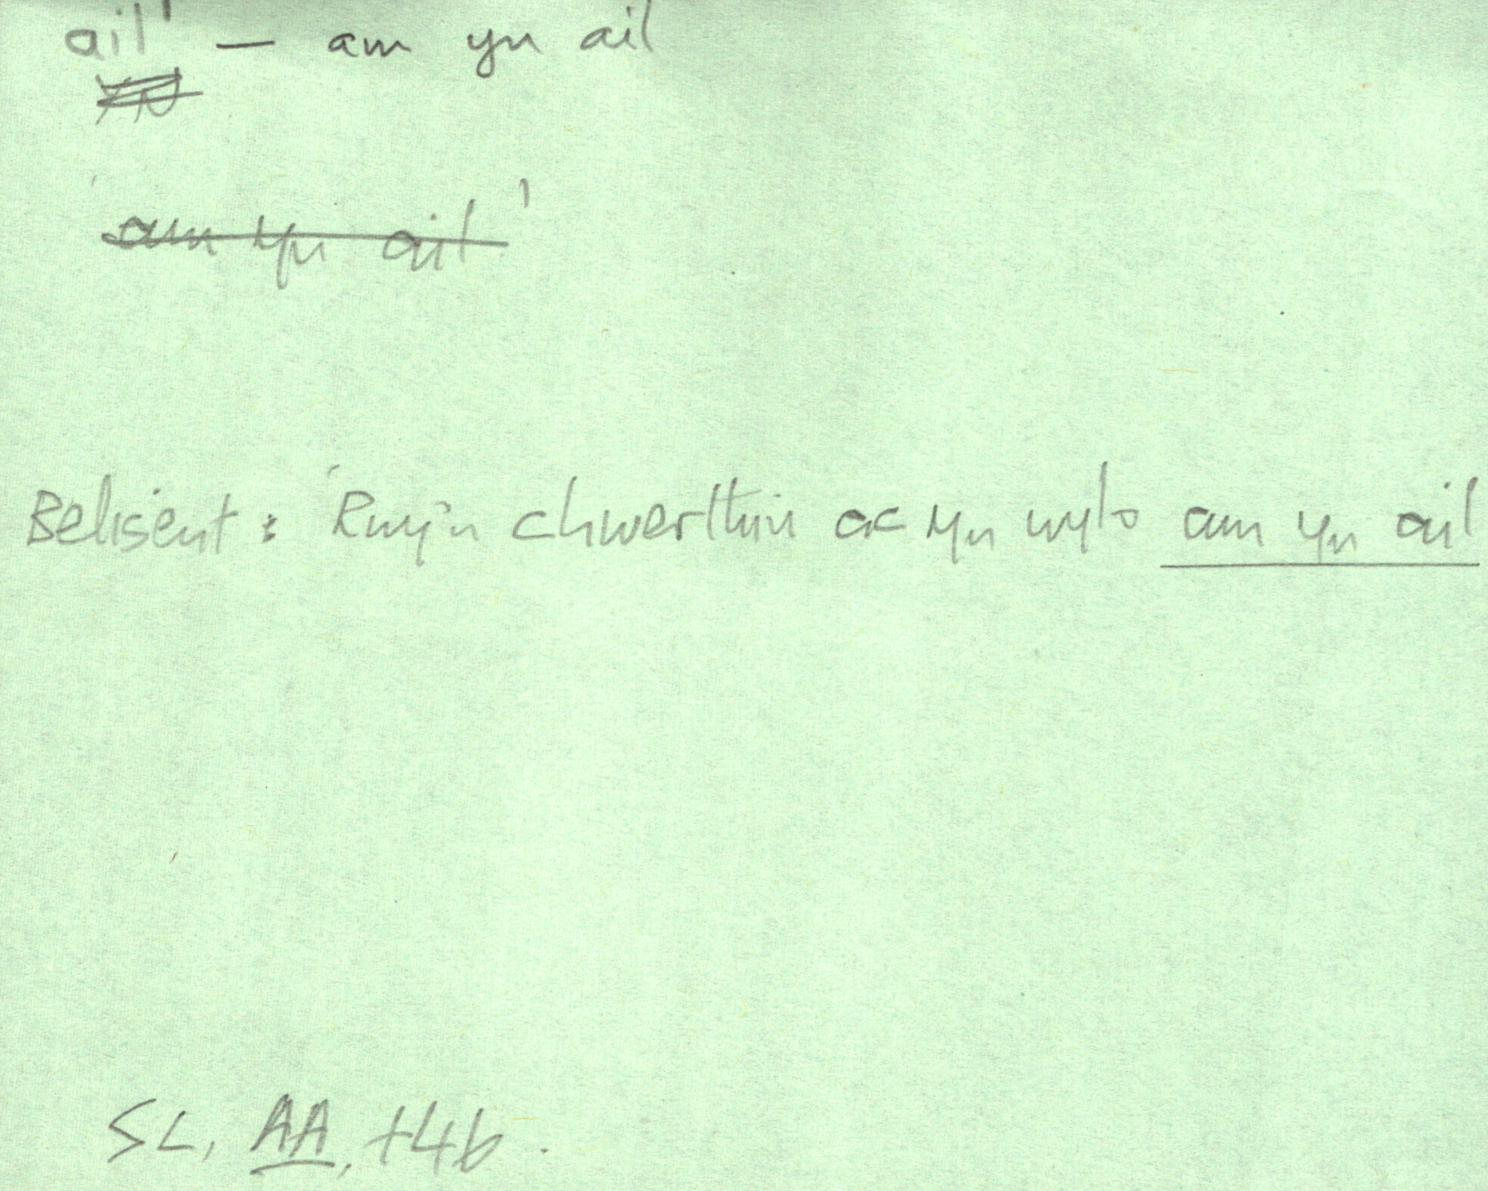 ail' — am yn ail
am yn ail'
Belisent: 'Rwy'n chwerthin ac yn wylo am yn ail
SL, AA, t46.